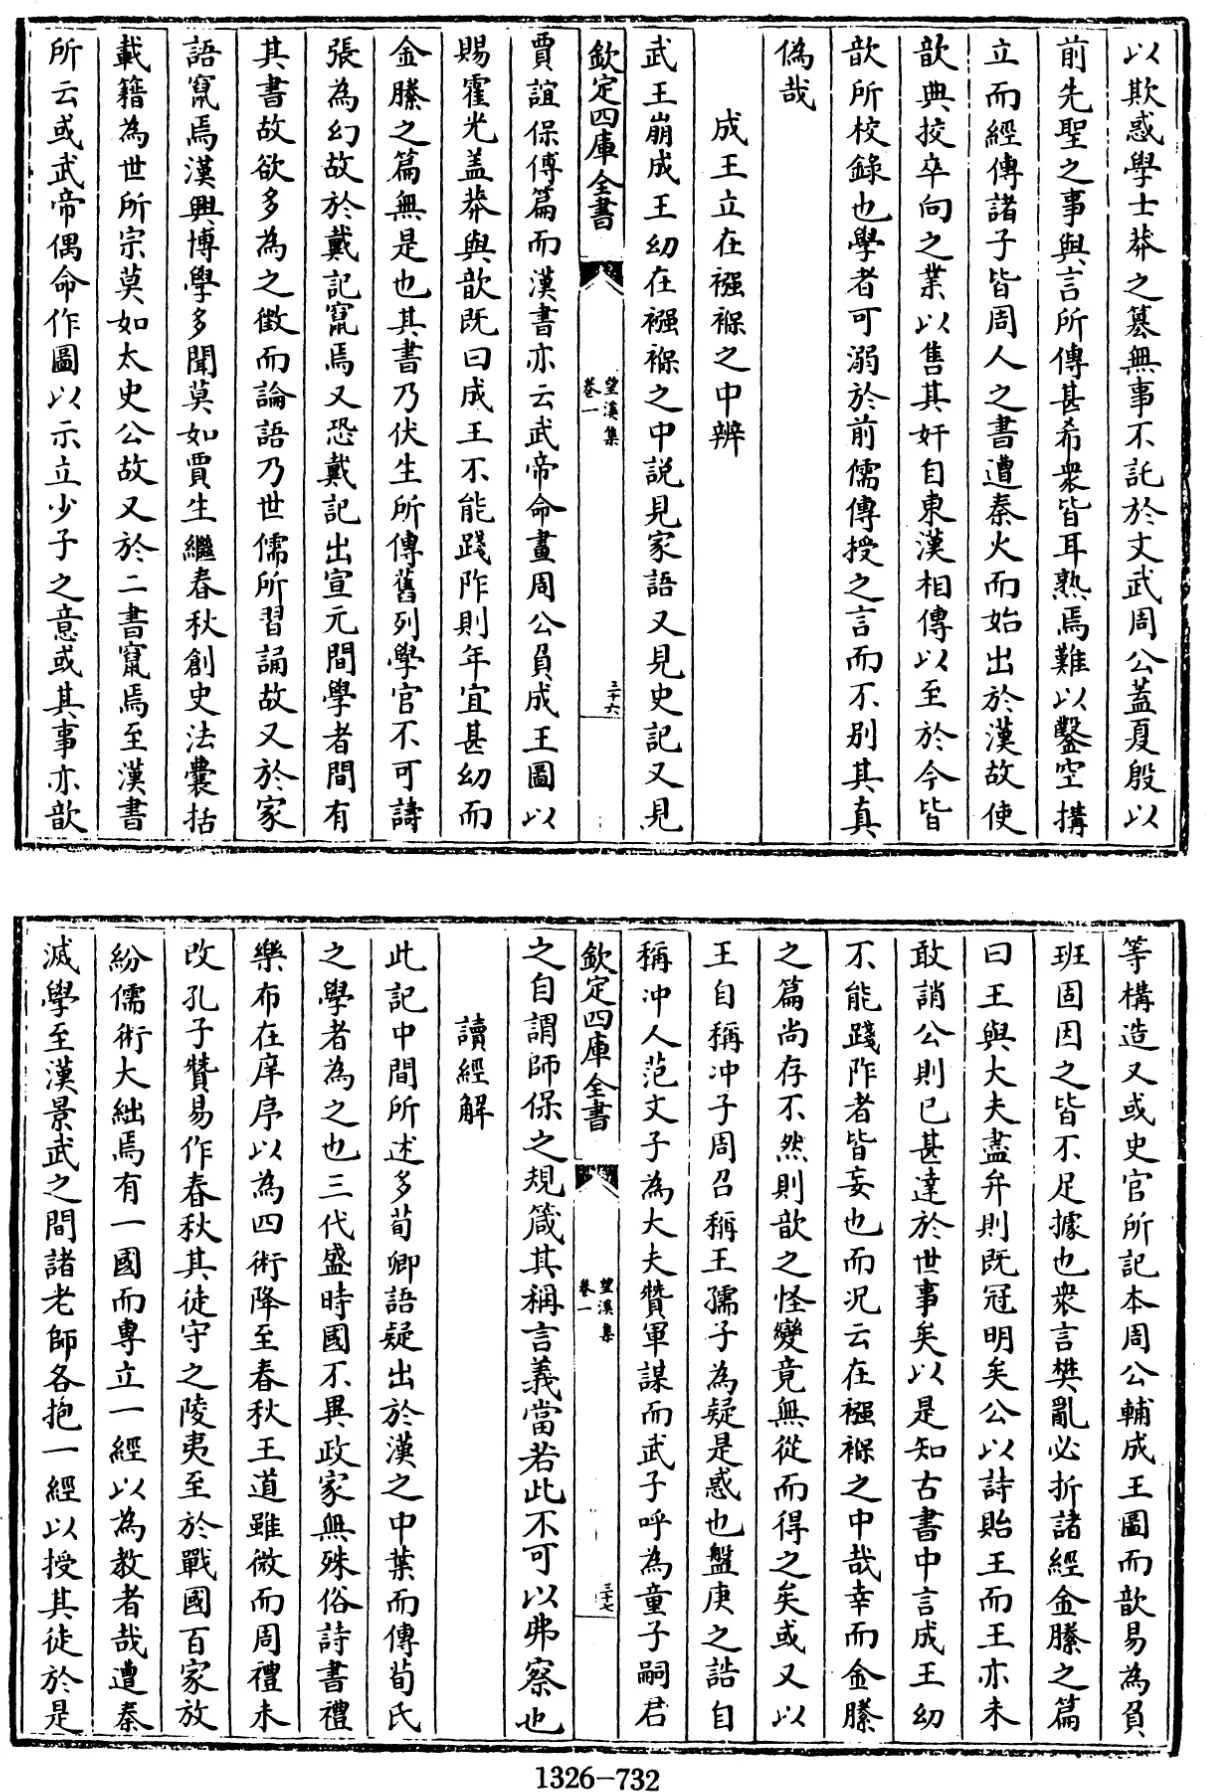 以欺惑學士莽之篡無事不託於文武周公蓋夏殷以
前先聖之事與言所傳甚希衆皆耳熟焉難以鑿空搆
立而經傳諸子皆周人之書遭秦火而始出於漢故使
歆典挍卒向之業以售其奸自東漢相傳以至於今皆
歆所校錄也學者可溺於前儒傳授之言而不别其真
偽哉
成王立在襁褓之中辨
武王崩成王幼在襁褓之中説見家語又見史記又見
欽定四庫全書
望溪集
卷一
三十六
賈誼保傅篇而漢書亦云武帝命畫周公負成王圖以
賜霍光盖莽與歆既曰成王不能踐阼則年宜甚幼而
金縢之篇無是也其書乃伏生所傳舊列學官不可譸
張為幻故於戴記竄焉又恐戴記出宣元間學者間有
其書故欲多為之徵而論語乃世儒所習誦故又於家
語竄焉漢興博學多聞莫如賈生繼春秋創史法囊括
載籍為世所宗莫如太史公故又於二書竄焉至漢書
所云或武帝偶命作圖以示立少子之意或其事亦歆
等構造又或史官所記本周公輔成王圖而歆易為負
班固因之皆不足據也衆言樊亂必折諸經金縢之篇
曰王與大夫盡弁則既冠明矣公以詩貽王而王亦未
敢誚公則已甚達於世事矣以是知古書中言成王幼
不能踐阼者皆妄也而况云在襁褓之中哉幸而金縢
之篇尚存不然則歆之怪變竟無從而得之矣或又以
王自稱冲子周召稱王孺子為疑是惑也盤庚之誥自
稱冲人范文子為大夫贊軍謀而武子呼為童子嗣君
欽定四庫全書
望溪集
卷一
三十七
之自謂師保之規箴其稱言義當若此不可以弗察也
讀經解
此記中間所述多荀卿語疑出於漢之中葉而傳荀氏
之學者為之也三代盛時國不異政家無殊俗詩書禮
樂布在庠序以為四術降至春秋王道雖微而周禮未
改孔子贊易作春秋其徒守之陵夷至於戰國百家放
紛儒術大絀焉有一國而專立一經以為教者哉遭秦
滅學至漢景武之間諸老師各抱一經以授其徒於是
1326—732